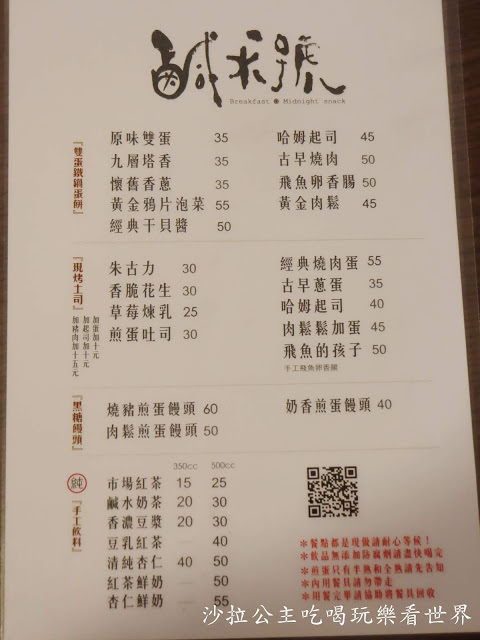 鹹水號
Breakfast & Midnight snack
『雙蛋鐵鍋蛋餅』
原味雙蛋 35
九層塔香 35
懷舊香蔥 35
黃金鴉片泡菜 55
經典干貝醬 50
哈姆起司 45
古早燒肉 50
飛魚卵香腸 50
黃金肉鬆 45
『現烤土司』
加蛋加十元
加起司加十元
加豬肉加十五元
朱古力 30
香脆花生 30
草莓煉乳 25
煎蛋吐司 30
經典燒肉蛋 55
古早蔥蛋 35
哈姆起司 40
肉鬆鬆加蛋 45
飛魚的孩子 50
手工飛魚卵香腸
『黑糖饅頭』
燒豬煎蛋饅頭 60
肉鬆煎蛋饅頭 50
奶香煎蛋饅頭 40
純『手工飲料』
350cc 500cc
市場紅茶 15 25
鹹水奶茶 20 30
香濃豆漿 20 30
豆乳紅茶 — 40
清純杏仁 40 50
紅茶鮮奶 — 50
杏仁鮮奶 — 55
＊餐點都是現做請耐心等候！
＊飲品無添加防腐劑請盡快喝完
＊煎蛋只有半熟和全熟請先告知
＊內用餐具請勿帶走
＊用餐完畢請協助將餐具回收
沙拉公主吃喝玩樂看世界